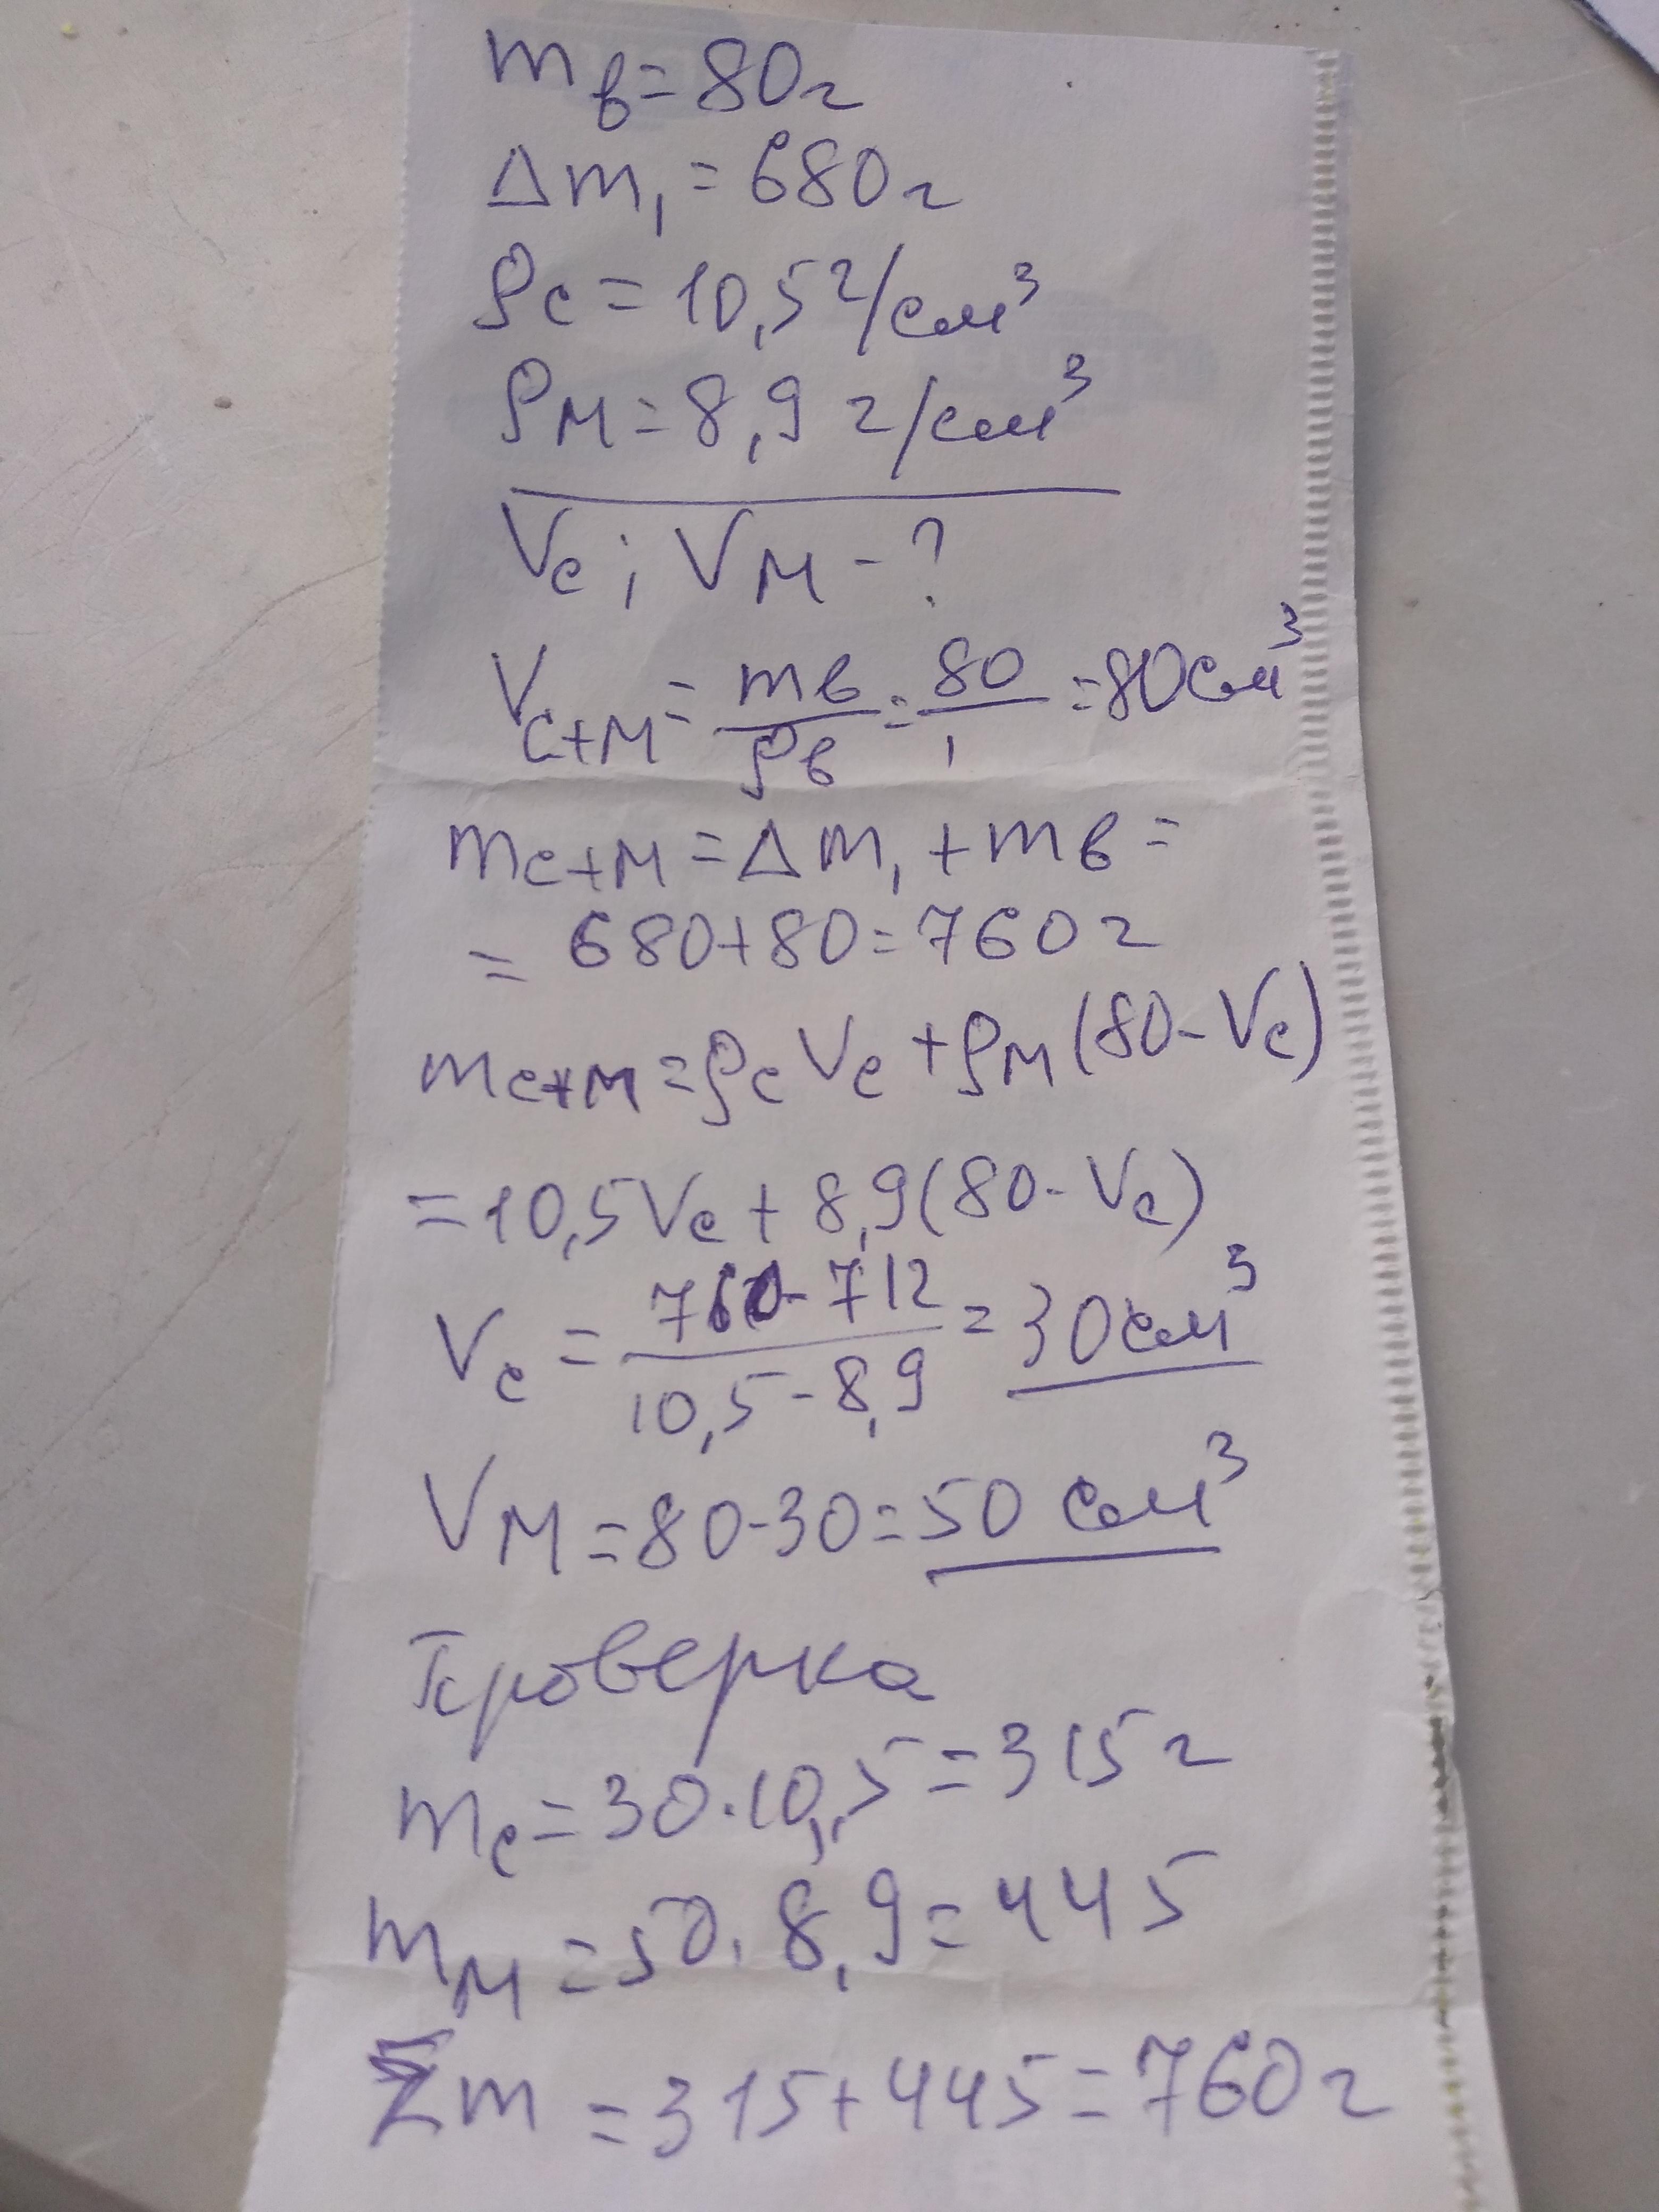 mв=80г
Δm₁=680г
ρс=10,5г/см³
ρм=8,9г/см³
Vс; Vм-?
Vс+м=mв/ρв=80/1=80см³
mс+м=Δm₁+mв=
=680+80=760г
mс+м=ρсVс+ρм(80-Vс)
=10,5Vс+8,9(80-Vс)
Vс=760-712/10,5-8,9=30см³
Vм=80-30=50 см³
Проверка
mс=30·10,5=315г
mм=50·8,9=445
Σm=315+445=760г